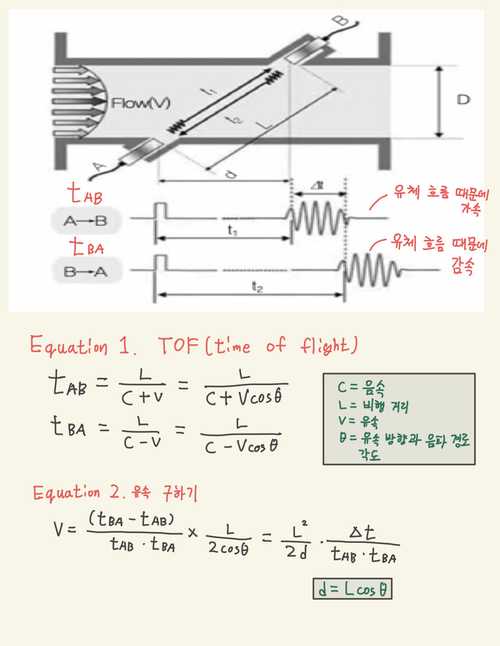 B
t₁
Flow(V)
t₂
L
D
A
d
t_AB
Δt
유체 흐름 때문에
가속
A→B
t₁
t_BA
유체 흐름 때문에
감속
B→A
t₂
Equation 1. TOF(time of flight)
t_AB = L/(C+V) = L/(C+Vcosθ)
t_BA = L/(C-V) = L/(C-Vcosθ)
C = 음속
L = 비행 거리
V = 유속
θ = 유속 방향과 음파 경로
각도
Equation 2. 유속 구하기
V = (t_BA - t_AB)/(t_AB · t_BA) × L/(2cosθ) = L²/(2d) · Δt/(t_AB · t_BA)
d = Lcosθ